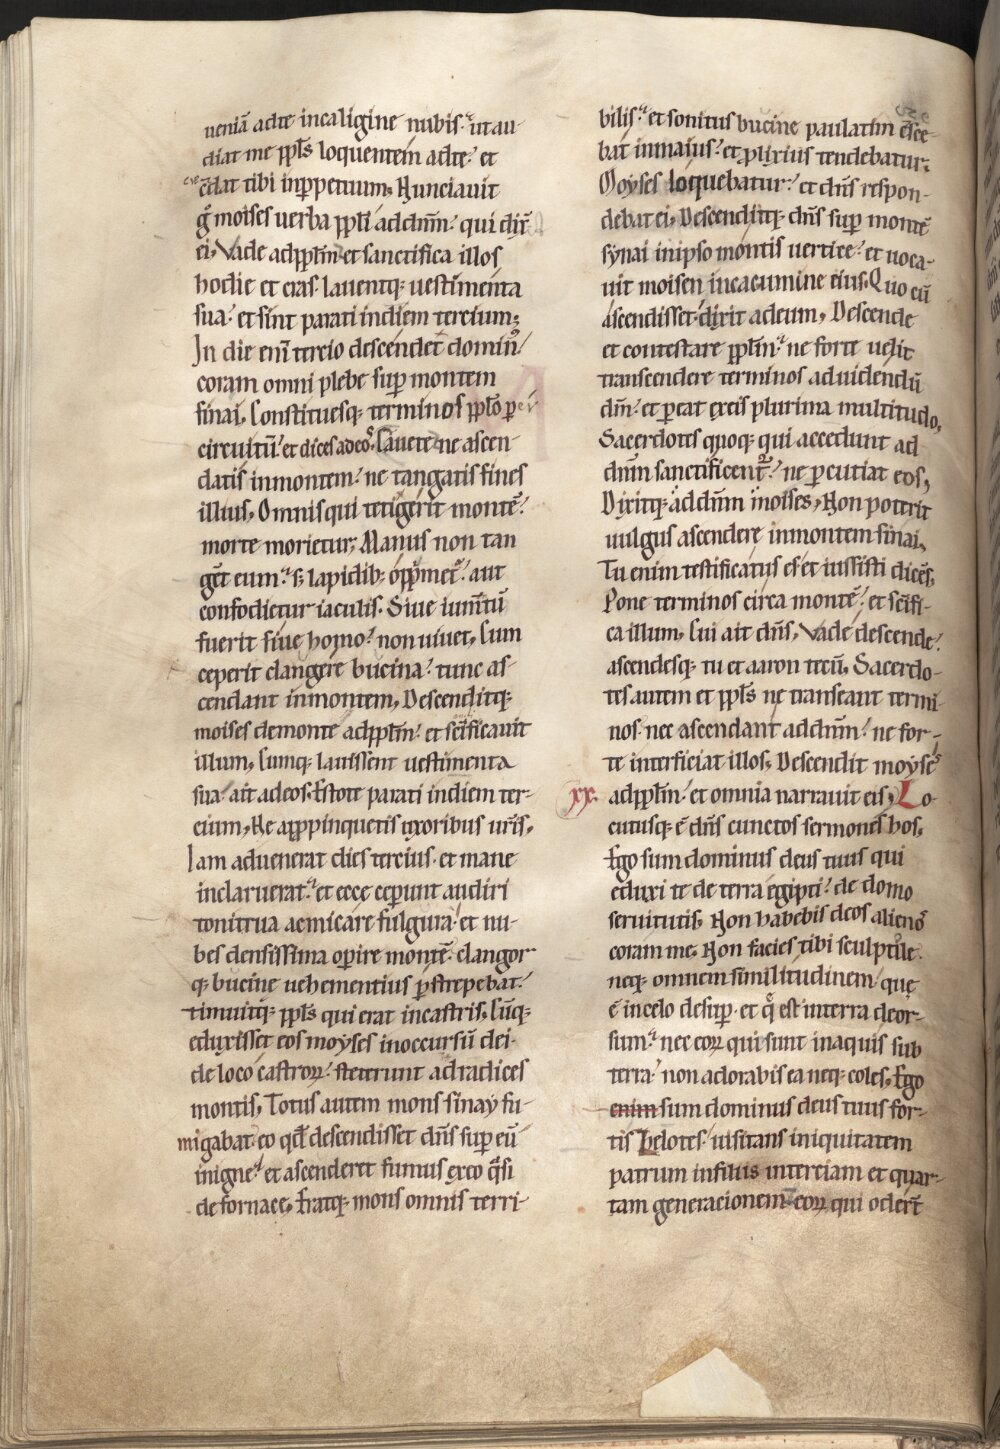 ueniā ad te in caligine nubis. ut au
diat me ppl̄s loquentem ad te. et
c͞edat tibi inꝑpetuum. Nunciauit
g̊ moises uerba ppl̄i ad dn̄m. qui dix̄
ei. Vade ad ppl̄m et sanctifica illos
hodie et cras. lauentq; uestimenta
sua. et sint parati in diem tercium;
In die eni̅ tercio descendet domin᷒
coram omni plebe suꝑ montem
sinai. Constituesq; terminos ppl̄o ꝑ
circuitū. et dices ad eos. Cauete ne ascen
datis in montem. ne tangatis fines
illius. Omnis qui tetigerit montē.
morte morietur. Manus non tan
get eum. s; lapidib; opp̄met᷑. aut
confodietur iaculis. Siue iumētū
fuerit siue homo. non uiuet. Cum
ceperit clangere bucina. tunc as-
cendant in montem. Descenditq;
moises de monte ad ppl̄m. et sc̄ificauit
illum. Cumq; lauissent uestimenta
sua. ait ad eos. Estote parati in diem ter-
cium. Ne appropinquetis uxoribus ur̄is.
Iam aduenerat dies tercius. et mane
inclaruerat. et ecce ceperunt audiri
tonitrua ac micare fulgura. et nu-
bes densissima operire montē. clangor
q; bucine uehementius ꝑstrepebat.
timuitq; ppl̄s qui erat in castris. Cūq;
eduxisset eos moyses in occursū dei.
de loco castroꝝ. steterunt ad radices
montis. Totus autem mons sinay fu-
migabat. eo qd̄ descendisset dn̄s suꝑ eū
in igne. et ascenderet fumus ex eo q͛si
de fornace. Eratq; mons omnis terri-
bilis. et sonitus bucine paulatim cresce-
bat in maius. et ꝓlixius tendebatur.
Moyses loquebatur. et dn̄s respon-
debat ei. Descenditq; dn̄s suꝑ montē
synai in ipso montis uertice. et uoca-
uit moisen in cacumine eius. Quo cū
ascendisset. dixit ad eum. Descende
et contestare ppl̄m. ne forte uelit
transcendere terminos ad uidendū
dn̄m. et pereat ex eis plurima multitudo.
Sacerdotes quoq; qui accedunt ad
dn̄m sanctificent᷑. ne ꝑcutiat eos.
Dixitq; ad dn̄m moises. Non poterit
uulgus ascendere in montem sinai.
Tu enim testificatus es et iussisti dicēs.
Pone terminos circa montē. et sc̄ifi-
ca illum. Cui ait dn̄s. Vade descende.
ascendesq; tu et aaron tecū. Sacerdo-
tes autem et ppl̄s ne transeant termi-
nos. nec ascendant ad dn̄m. ne for-
te interficiat illos. Descendit moyses
xx. ad ppl̄m. et omnia narrauit eis. Lo-
cutusq; ē dn̄s cunctos sermones hos.
Ego sum dominus deus tuus qui
eduxi te de terra egipti. de domo
seruitutis. Non habebis deos alienos
coram me. Non facies tibi sculptile.
neq; omnem similitudinem. que
ē in celo desuꝑ. et q̄ est in terra deor-
sum. nec eoꝝ qui sunt in aquis sub
terra. non adorabis ea neq; coles. Ego
enim sum dominus deus tuus for-
tis zelotes. uisitans iniquitatem
patrum in filiis in terciam et quar-
tam generacionem eoꝝ qui oder̄t